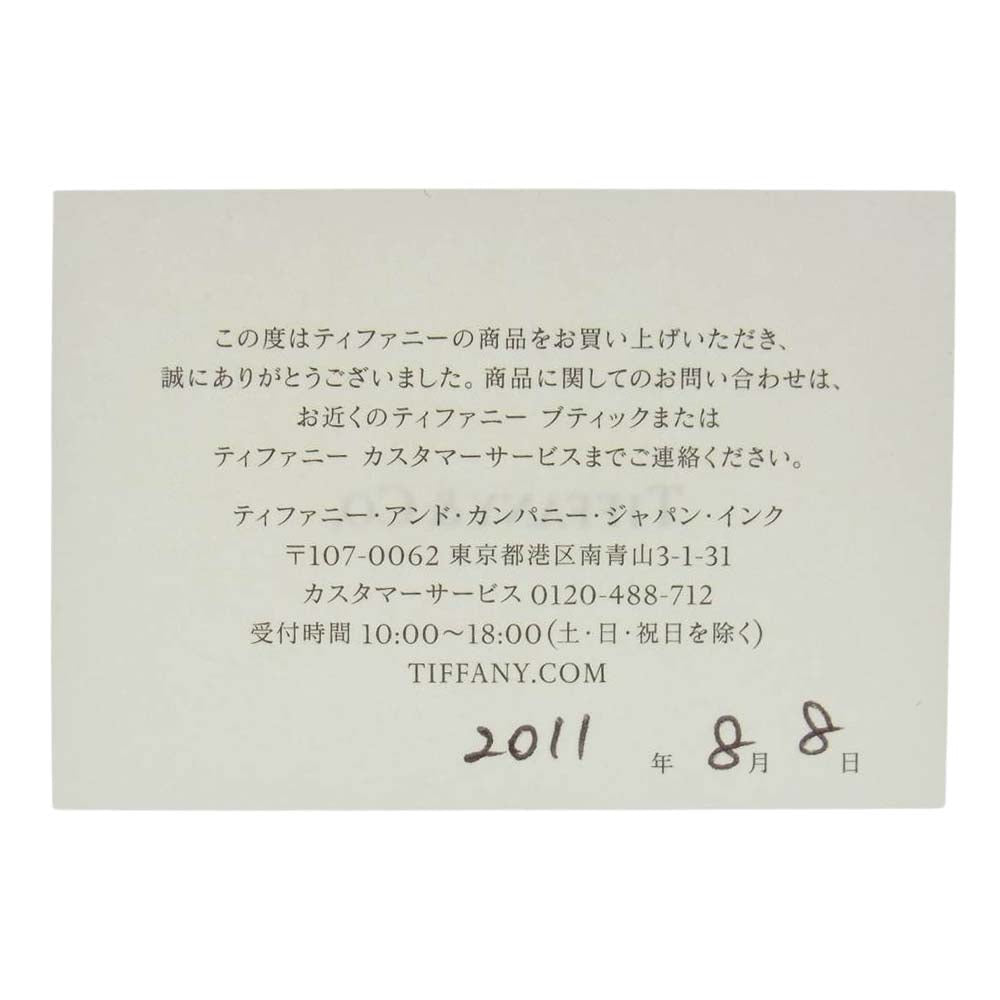 この度はティファニーの商品をお買い上げいただき、
誠にありがとうございました。商品に関してのお問い合わせは、
お近くのティファニー ブティックまたは
ティファニー カスタマーサービスまでご連絡ください。
ティファニー・アンド・カンパニー・ジャパン・インク
〒107-0062 東京都港区南青山3-1-31
カスタマーサービス 0120-488-712
受付時間 10:00〜18:00(土・日・祝日を除く)
TIFFANY.COM
2011 年 8月 8日